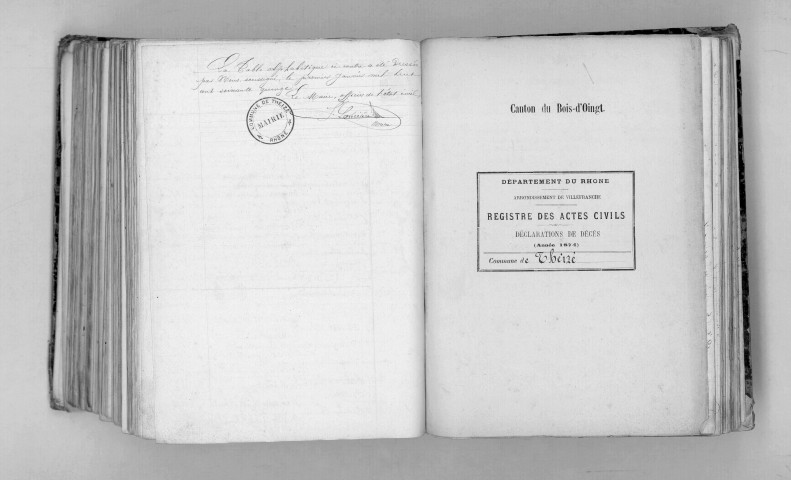 La Table alphabétique ci contre a été dressée
par Nous soussigné, le premier Janvier mil huit
cent soixante quinze.
Le Maire, officier de l'état civil
COMMUNE DE THEIZÉ
MAIRIE
RHÔNE
Canton du Bois-d'Oingt.
DÉPARTEMENT DU RHONE
ARRONDISSEMENT DE VILLEFRANCHE
REGISTRE DES ACTES CIVILS
DÉCLARATIONS DE DÉCÈS
(Année 1874)
Commune de Theizé